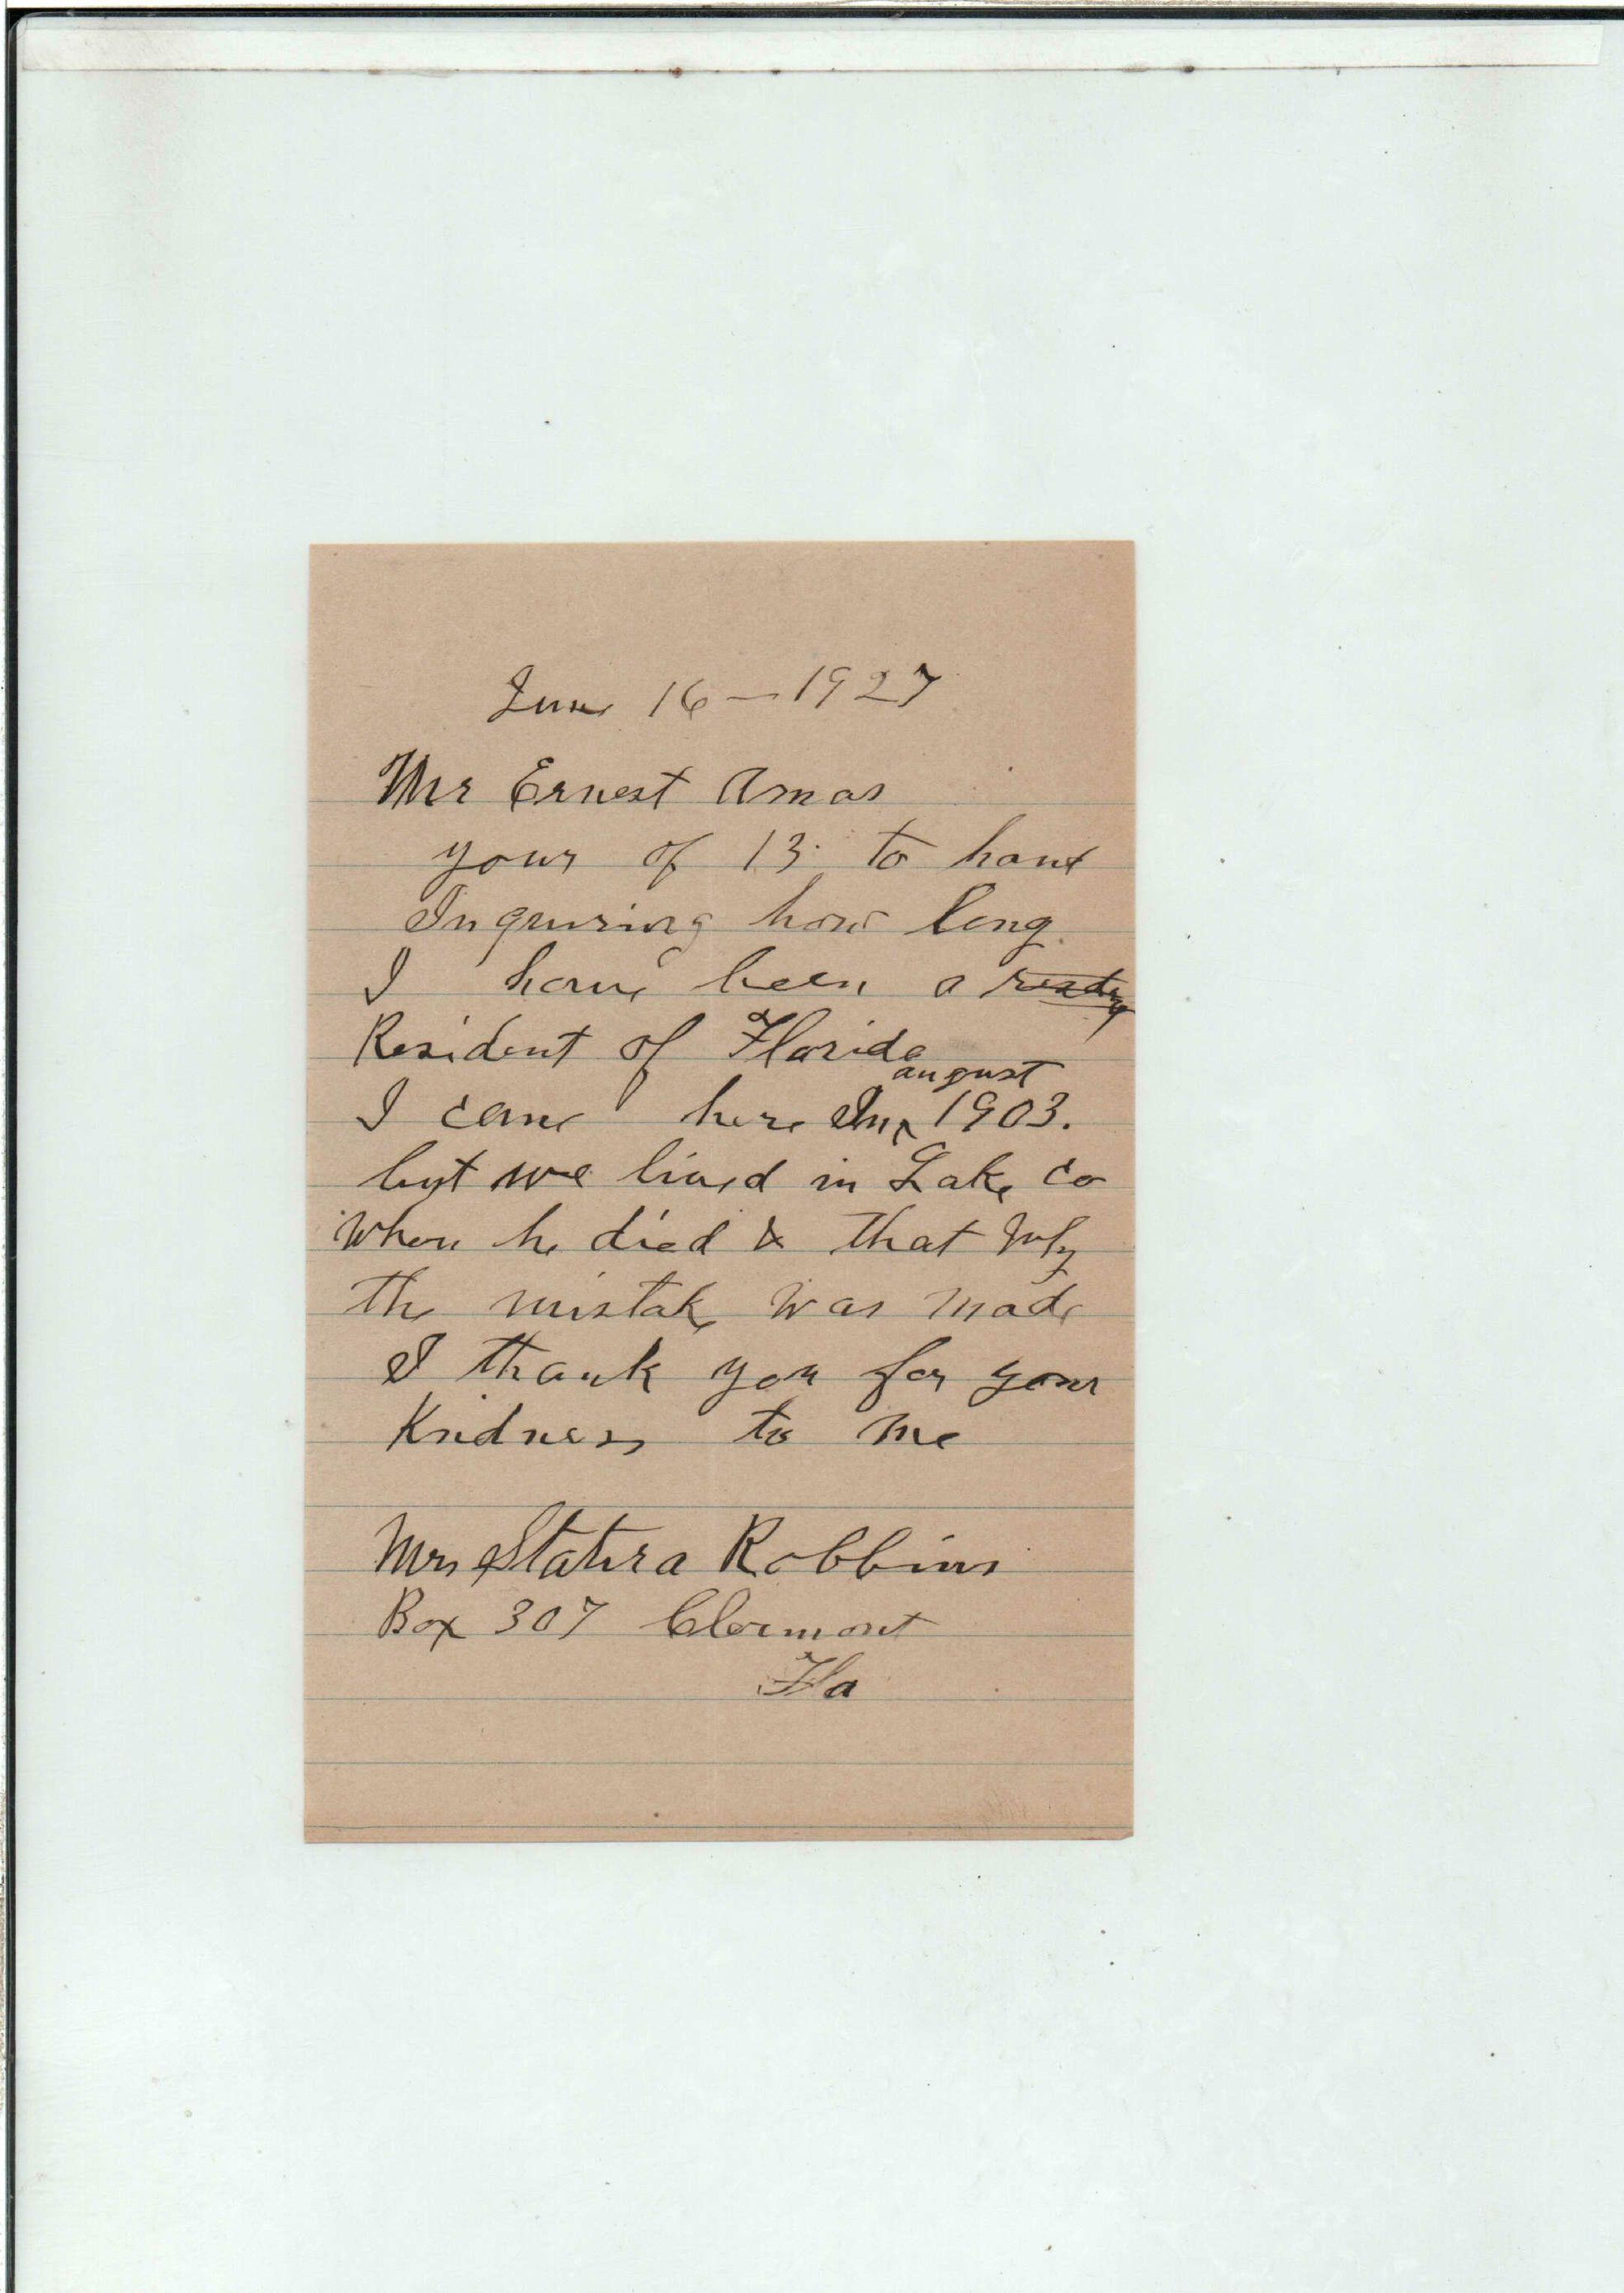 June 16 - 1927
Mr Ernest Amos
yours of 13. to hand
Inquiring how long
I have been a
Resident of Florida
august
I came here In ^ 1903.
but we lived in Lake Co
When he died & that why
the mistake was made
I thank you for your
Kindness to me
Mrs Statira Robbins
Box 307 Clermont
Fla